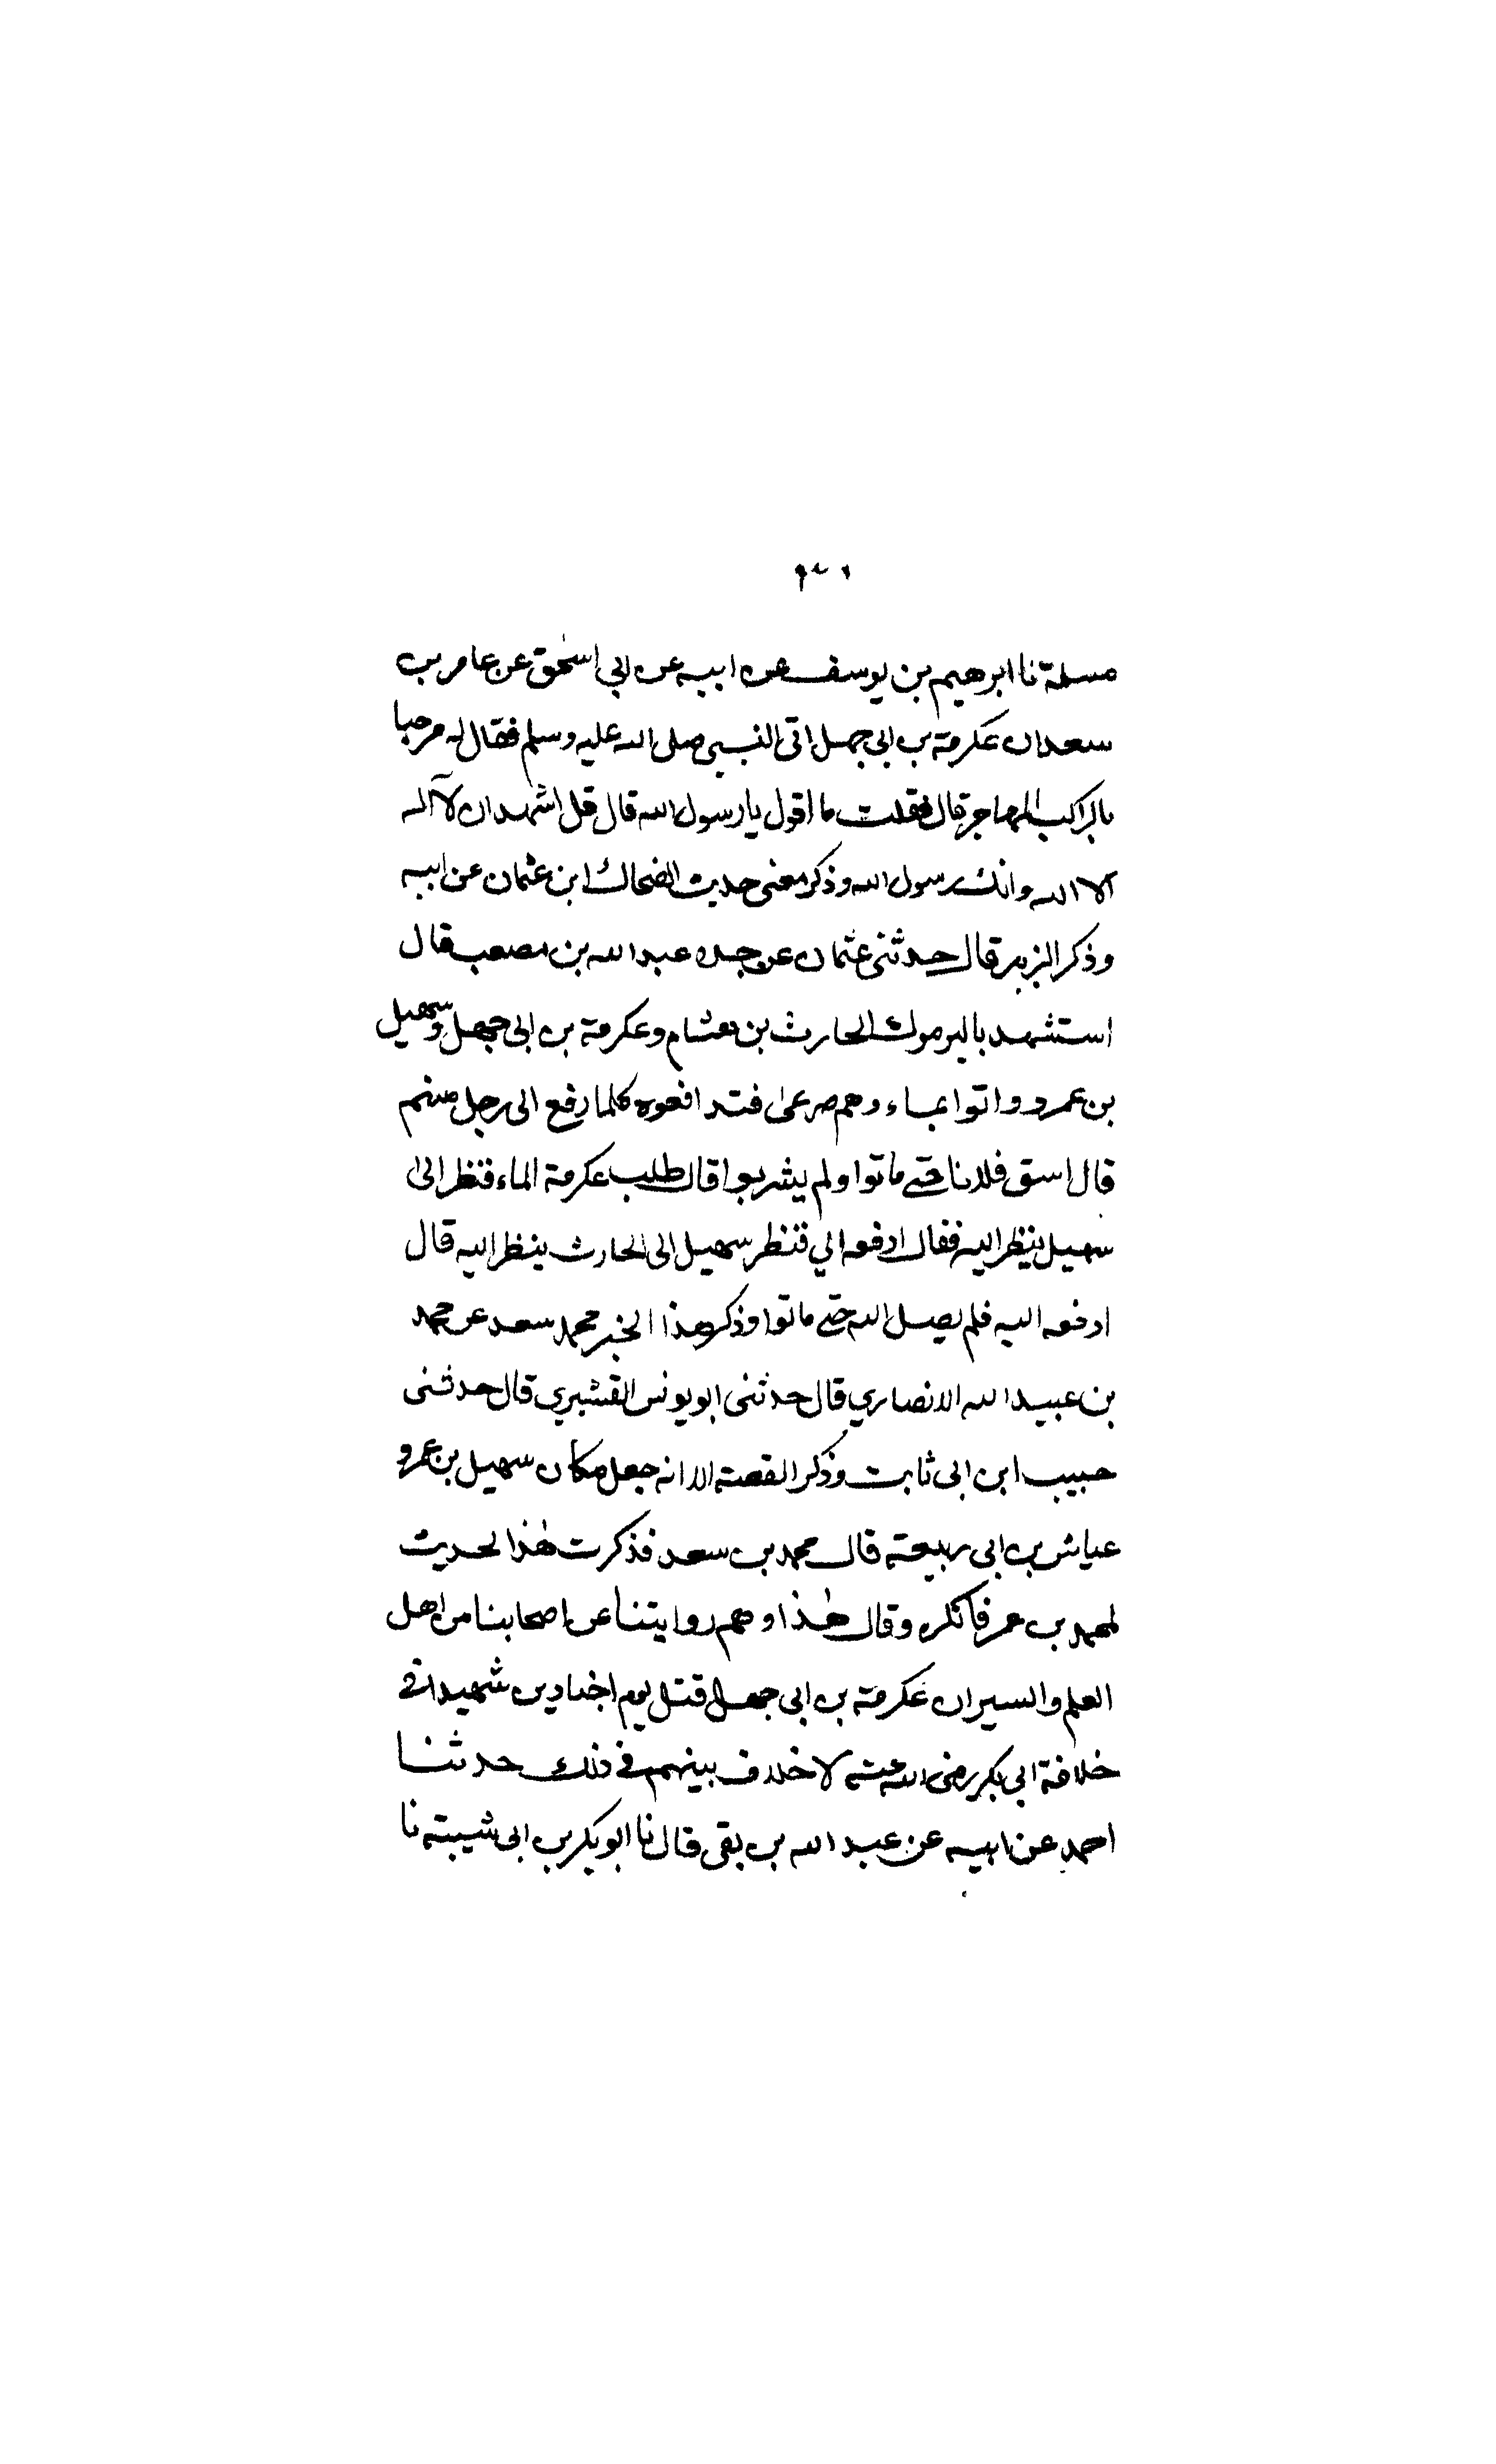 مسلمة نا ابرهيم بن يوسف عن ابيه عن ابي اسحٰق عن عامر بن
سعد ان عكرمة بن ابي جهل اتى النبي صلى الله عليه وسلم فقال له مرحبا
بالراكب المهاجر قال فقلت ما اقول يا رسول الله قال قل اشهد ان لا اله
الا الله وانك رسول الله وذكر معنى حديث الضحاك ابن عثمان عن ابيه
وذكر الزبير قال حدثنى عثمان عن جده عبد الله بن مصعب قال
استشهد باليرموك الحارث بن هشام وعكرمة بن ابى جهل وسهيل
بن عمرو واتوا بماء وهم صرعىٰ فتدافعوه كلما رفع الى رجل منهم
قال اسق فلانا حتى ماتوا ولم يشربوا قال طلب عكرمة الماء فنظر الىٰ
سهيل ينظر اليه فقال ادفعه الي فنظر سهيل الى الحارث ينظر اليه قال
ادفعه اليه فلم يصل اليه حتى ماتوا وذكر هذا الخبر محمد سعد عن محمد
بن عبيد الله الانصاري قال حدثنى ابو يونس القشيري قال حدثنى
حبيب ابن ابى ثابت وذكر القصة الا انه جعل مكان سهيل بن عمرو
عياش بن ابى ربيعة قال محمد بن سعد فذكرت هٰذا الحديث
لمحمد بن عمر فانكره وقال هٰذا وهم روايتنا عن اصحابنا من اهل
العلم والسير ان عكرمة بن ابى جهل قتل يوم اجنادين شهيدا فى
خلافة ابي بكر رضى الله عنه لا خلاف بينهم فى ذلك حدثنا
احمد عن ابيه عن عبد الله بن بقى قال نا ابو بكر بن ابى شيبة نا